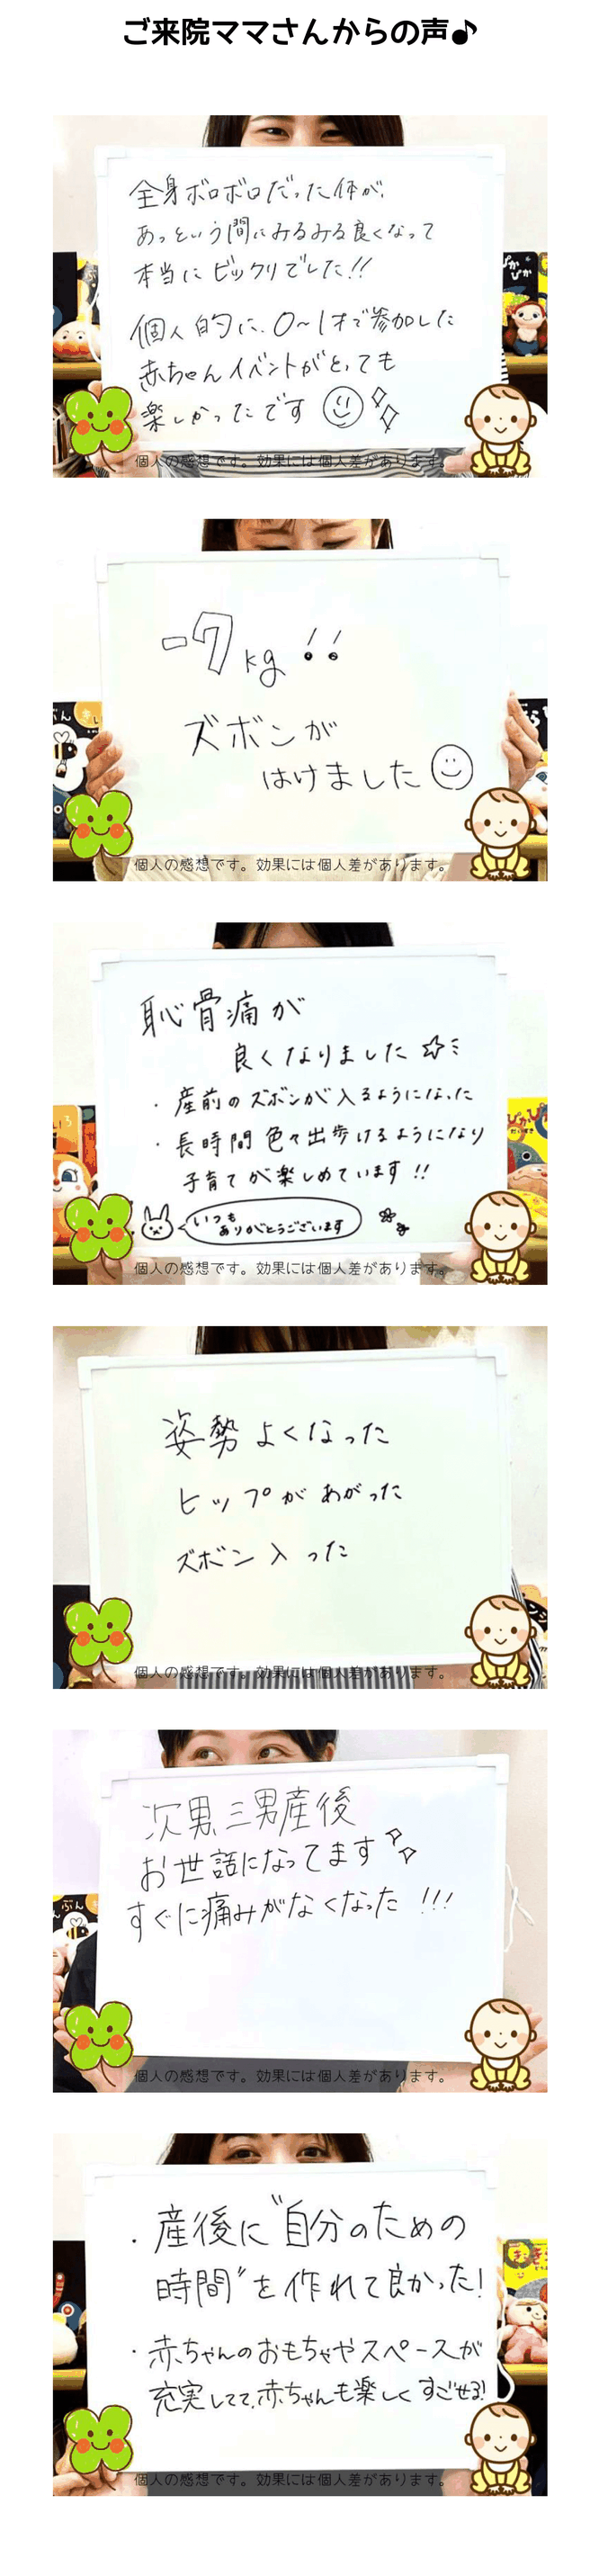 ご来院ママさんからの声♪
全身ボロボロだった体が、
あっという間にみるみる良くなって
本当にビックリでした!!
個人的に、0~1才で参加した
赤ちゃんイベントがとっても
楽しかったです
ぴか
ぴか
個人の感想です。効果には個人差があります。
-7kg!!
ズボンが
はけました
個人の感想です。効果には個人差があります。
恥骨痛が
良くなりました☆
・産前のズボンが入るようになった
・長時間色々出歩けるようになり
子育てが楽しめています!!
いつも
ありがとうございます
個人の感想です。効果には個人差があります。
姿勢よくなった
ヒップがあがった
ズボン入った
個人の感想です。効果には個人差があります。
次男、三男産後
お世話になってます
すぐに痛みがなくなった!!!
個人の感想です。効果には個人差があります。
・産後に〝自分のための
時間〟を作れて良かった!
・赤ちゃんのおもちゃやスペースが
充実してて、赤ちゃんも楽しくすごせる!
個人の感想です。効果には個人差があります。